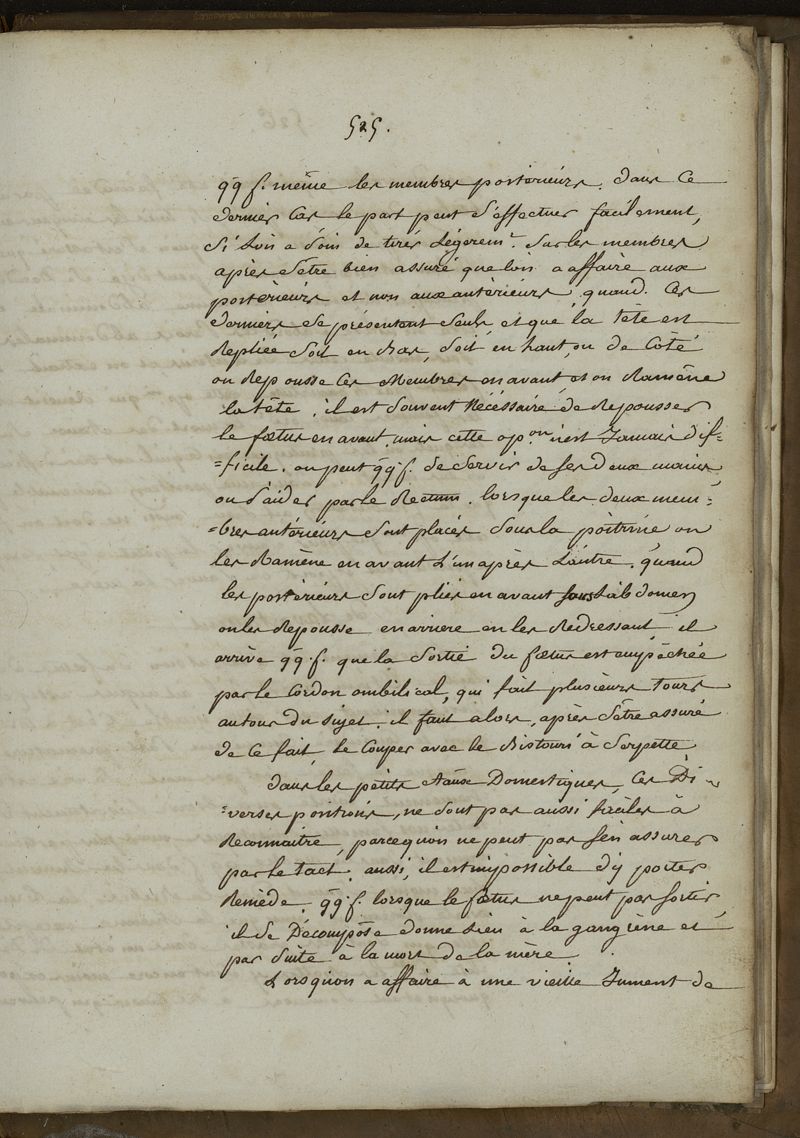 525.
qq f. même les membres postérieurs. dans ce
dernier cas le part peut s'effectuer facilement,
si l'on a soin de tirer légèremt. sur les membres
après s'être bien assuré que l'on a affaire aux
postérieurs et non aux antérieurs, quand ces
derniers se présentent seuls, et que la tête est
repliée soit en bas, soit en haut, ou de côté
on repousse ces membres en avant, et on ramène
la tête, il est souvent nécessaire de repousser
le fœtus en avant, mais cette opon. n'est jamais dif=
=ficile. on peut qq. f. se servir de ses deux mains
ou s'aider par le rectum. lorsque les deux mem=
=bres antérieurs sont placés sous la poitrine on
les ramène en avant l'un après l'autre. quand
les postérieurs sont pliés en avant sous l'abdomen
on les repousse en arriere en les redressant il
arrive qq. f. que la sortie du fœtus est empêchée
par le cordon ombilical, qui fait plusieurs tours
autour du sujet. il faut alors, après s'être assuré
de ce fait, le couper avec le bistouri à serpette
dans les petits Aaux Domestiques, ces Di-
=verses positions, ne sont pas aussi faciles à
reconnaitre, parcequ'on ne peut pas s'en assurer
par le tact, aussi, il est impossible d'y porter
remède. qq. f. lorsque le fœtus ne peut pas sortir,
il se décompose donne lieu à la gangrène et
par suite à la mort de la mère.
Lorsqu'on a affaire à une vieille jument de